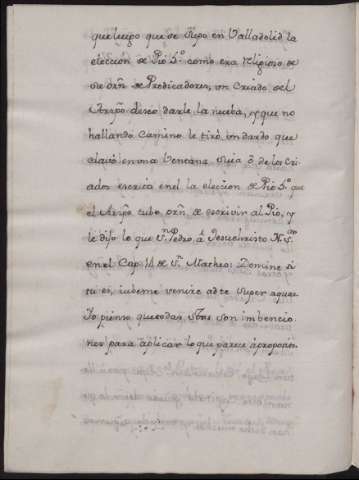 que luego que se Supo en Valladolid la
eleccion de Pio 5.º como era Religioso de
su orñ de Predicadores, un Criado del
Arzpõ deseó darle la nueba, y que no
hallando Camino le tiró un dardo que
clavó en una Ventana
dos escrita en el la eleccion de Pio 5.º que
el Arzpõ tubo orñ. de escrivir al Pio, y
le dijo lo que S.n Pedro, á Jesuchristo N.S.
en el Cap. 14 de S.n Matheo: Domine si
tu es, iubeme venire ad te super aquas
Yo pienso que todas son imbencio
nes para aplicar lo que parece á proposito.